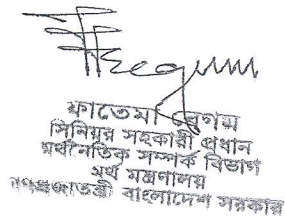 ফাতেমা বেগম
সিনিয়র সহকারী প্রধান
অর্থনৈতিক সম্পর্ক বিভাগ
অর্থ মন্ত্রণালয়
গণপ্রজাতন্ত্রী বাংলাদেশ সরকার